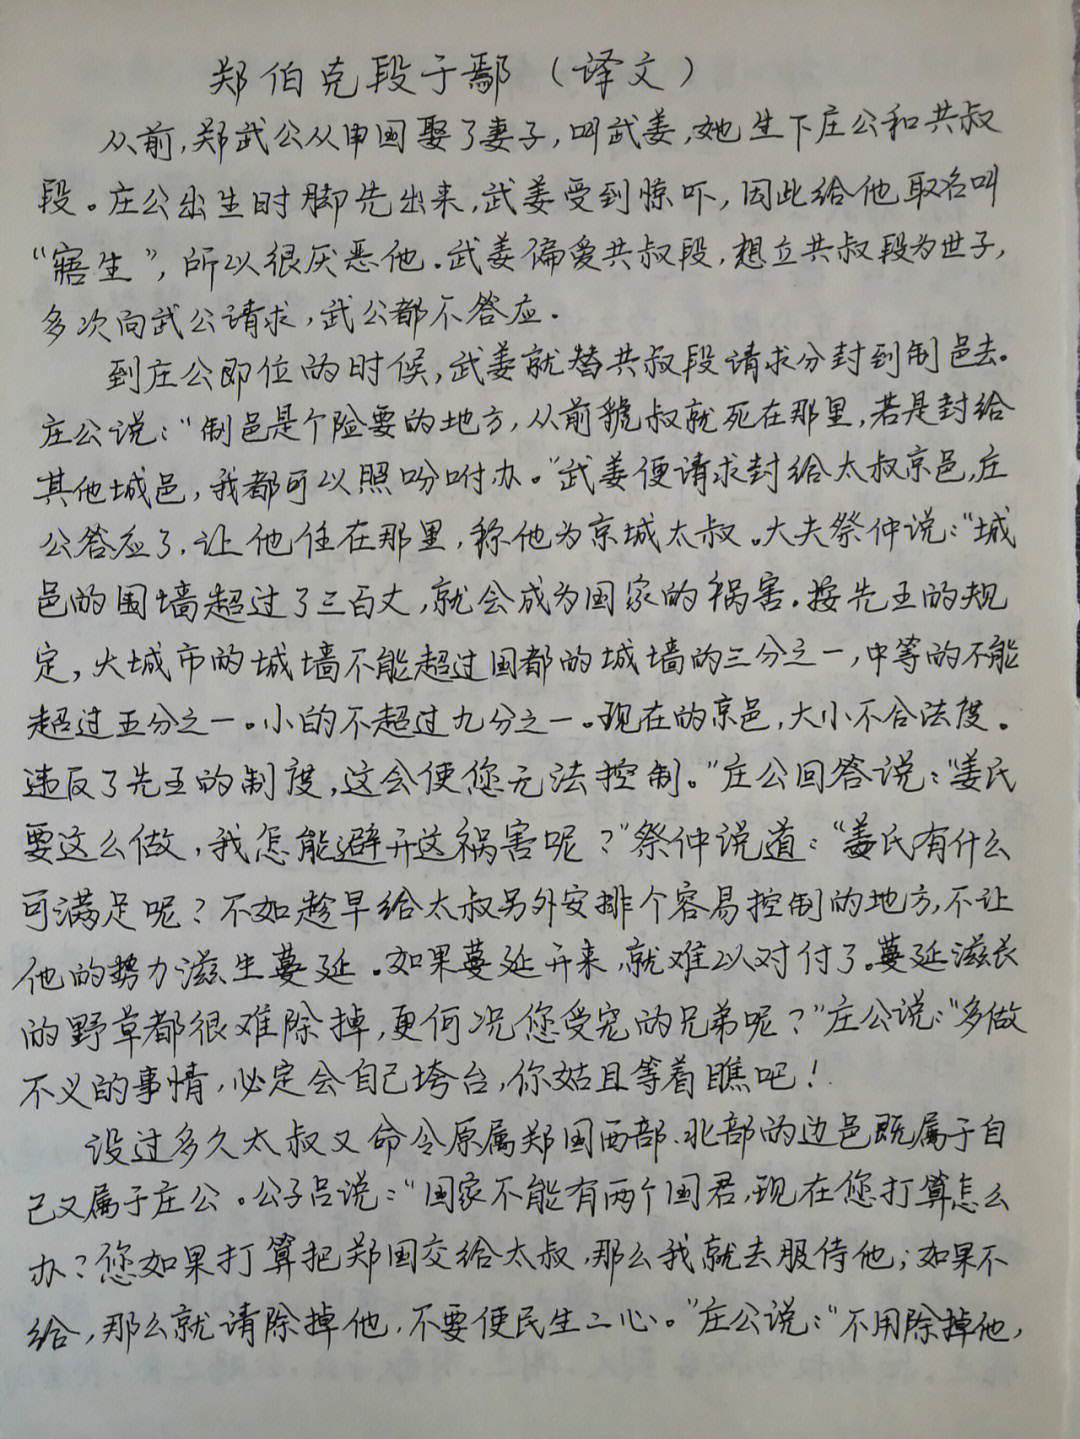 郑伯克段于鄢（译文）
从前,郑武公从申国娶了妻子,叫武姜,她生下庄公和共叔
段。庄公出生时脚先出来,武姜受到惊吓,因此给他取名叫
“寤生”,所以很厌恶他.武姜偏爱共叔段,想立共叔段为世子,
多次向武公请求,武公都不答应.
到庄公即位的时候,武姜就替共叔段请求分封到制邑去.
庄公说:“制邑是个险要的地方,从前虢叔就死在那里,若是封给
其他城邑,我都可以照吩咐办。”武姜便请求封给太叔京邑,庄
公答应了,让他住在那里,称他为京城太叔.大夫祭仲说:“城
邑的围墙超过了三百丈,就会成为国家的祸害.按先王的规
定,大城市的城墙不能超过国都的城墙的三分之一,中等的不能
超过五分之一。小的不超过九分之一。现在的京邑,大小不合法度.
违反了先王的制度,这会使您无法控制。”庄公回答说:“姜氏
要这么做,我怎能避开这祸害呢?”祭仲说道:“姜氏有什么
可满足呢?不如趁早给太叔另外安排个容易控制的地方,不让
他的势力滋生蔓延.如果蔓延开来,就难以对付了.蔓延滋长
的野草都很难除掉,更何况您受宠的兄弟呢?”庄公说:“多做
不义的事情,必定会自己垮台,你姑且等着瞧吧!
没过多久太叔又命令原属郑国西部、北部的边邑既属于自
己又属于庄公。公子吕说:“国家不能有两个国君,现在您打算怎么
办?您如果打算把郑国交给太叔,那么我就去服侍他;如果不
给,那么就请除掉他,不要使民生二心。”庄公说:“不用除掉他,